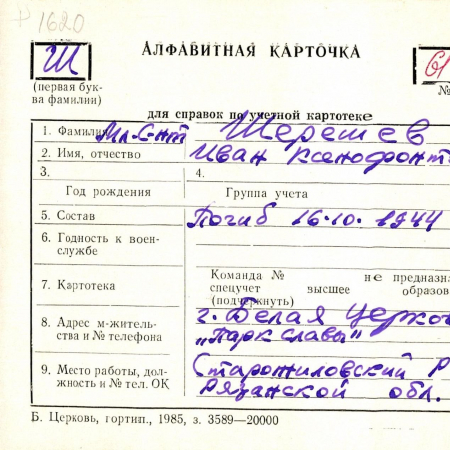 Р 1620
Ш
АЛФАВИТНАЯ КАРТОЧКА
61
(первая бук-
ва фамилии)
№
для справок по учетной картотеке
1. Фамилия Мл. С-нт Шерешев
2. Имя, отчество Иван Ксенофонт
3.
4.
Год рождения
Группа учета
5. Состав Погиб 16.10.1944
6. Годность к воен-
службе
7. Картотека
Команда № не предназна
спецучет высшее образов
(подчеркнуть)
8. Адрес м-житель-
ства и № телефона
г. Белая Церков
„Парк славы"
9. Место работы, дол-
жность и № тел. ОК
Старожиловский Р
Рязанской обл.
Б. Церковь, гортип., 1985, з. 3589—20000